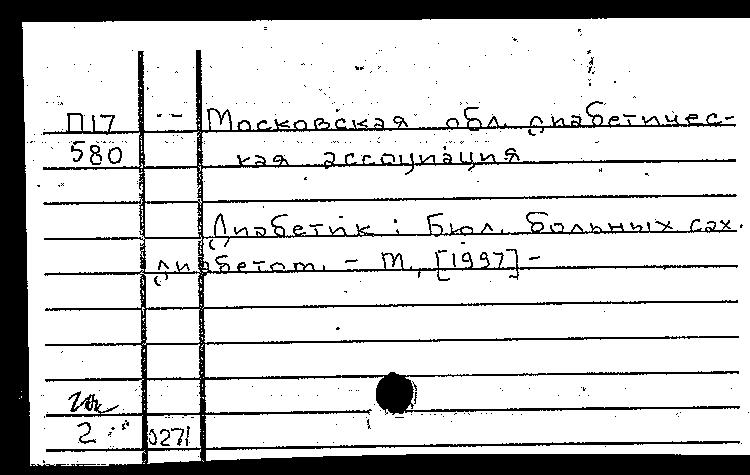 П17 -- Московская обл. диабетичес-
580 кая ассоциация
Диабетик : Бюл. больных сах.
диабетом. - М., [1997] -
2 0271